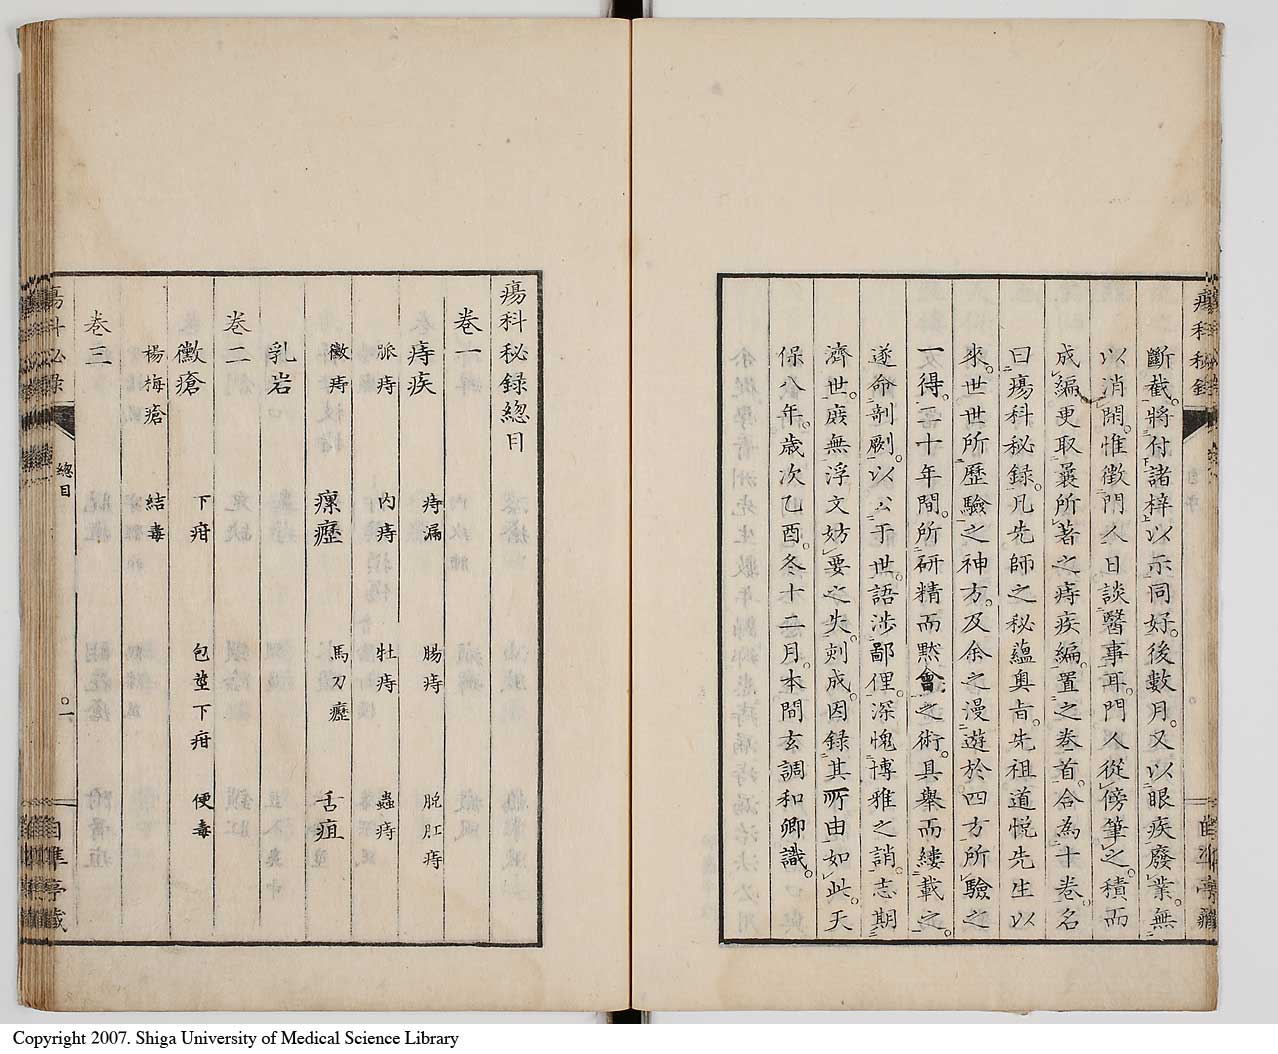 瘍科秘錄
自序
自準亭藏
斷截。將付諸梓以示同好。後數月。又以眼疾廢業。無
以消閑。惟徵門人日談醫事耳。門人從傍筆之。積而
成編。更取曩所著之痔疾編。置之卷首。合為十卷。名
曰瘍科秘錄。凡先師之秘蘊奧旨。先祖道悅先生以
來。世世所歷驗之神方。及余之漫遊於四方所驗之
一得。二十年間。所研精而默會之術。具舉而縷載之。
遂命剞劂。以公于世。語涉鄙俚。深愧博雅之誚。志期
濟世。庶無浮文妨要之失。刻成。因錄其所由如此。天
保八年。歲次乙酉。冬十二月。本間玄調和卿識。
瘍科秘錄總目
卷一
痔疾 痔漏 腸痔 脫肛痔
脈痔 內痔 牡痔 蟲痔
黴痔 瘰癧 馬刀癧 舌疽
乳岩
卷二
黴瘡 下疳 包莖下疳 便毒
楊梅瘡 結毒
卷三
瘍科秘錄
總目
〇一
自準亭藏
Copyright 2007. Shiga University of Medical Science Library